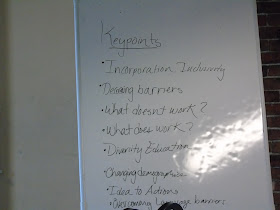 Keypoints
• Incorporation Inclusivity
• Desiring barriers
• What doesn't work?
• What does work?
• Diversity Education
• Changing demographics
• Idea to Actions
• Overcoming Language barriers